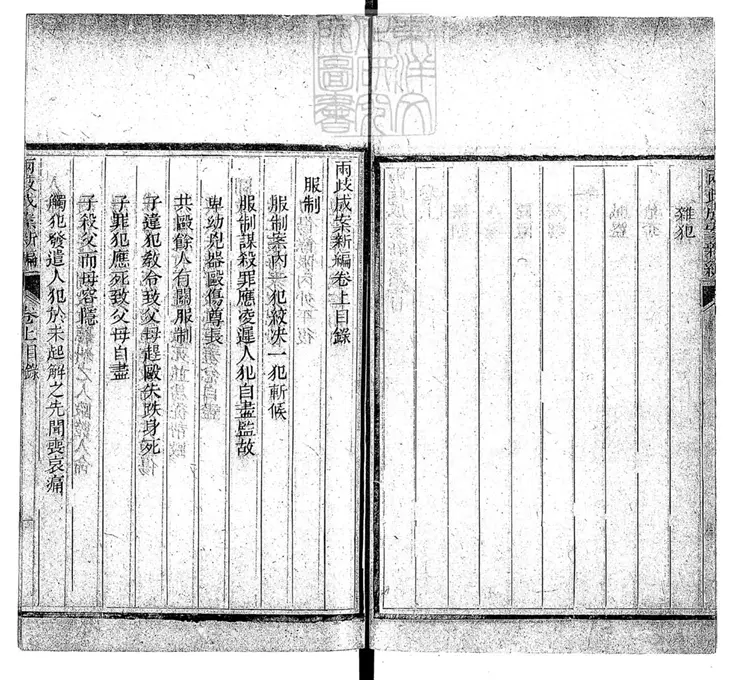 雜犯
兩歧成案新編卷上目錄
服制
服制案內一犯絞決一犯斬候
服制謀殺罪應凌遲人犯自盡監故
卑幼兇器毆傷尊長
共毆餘人有關服制
子違犯教令致父母趕毆失跌身死
子罪犯應死致父母自盡
子殺父而母容隱
觸犯發遣人犯於未起解之先聞喪哀痛
兩歧成案新編 卷上目錄